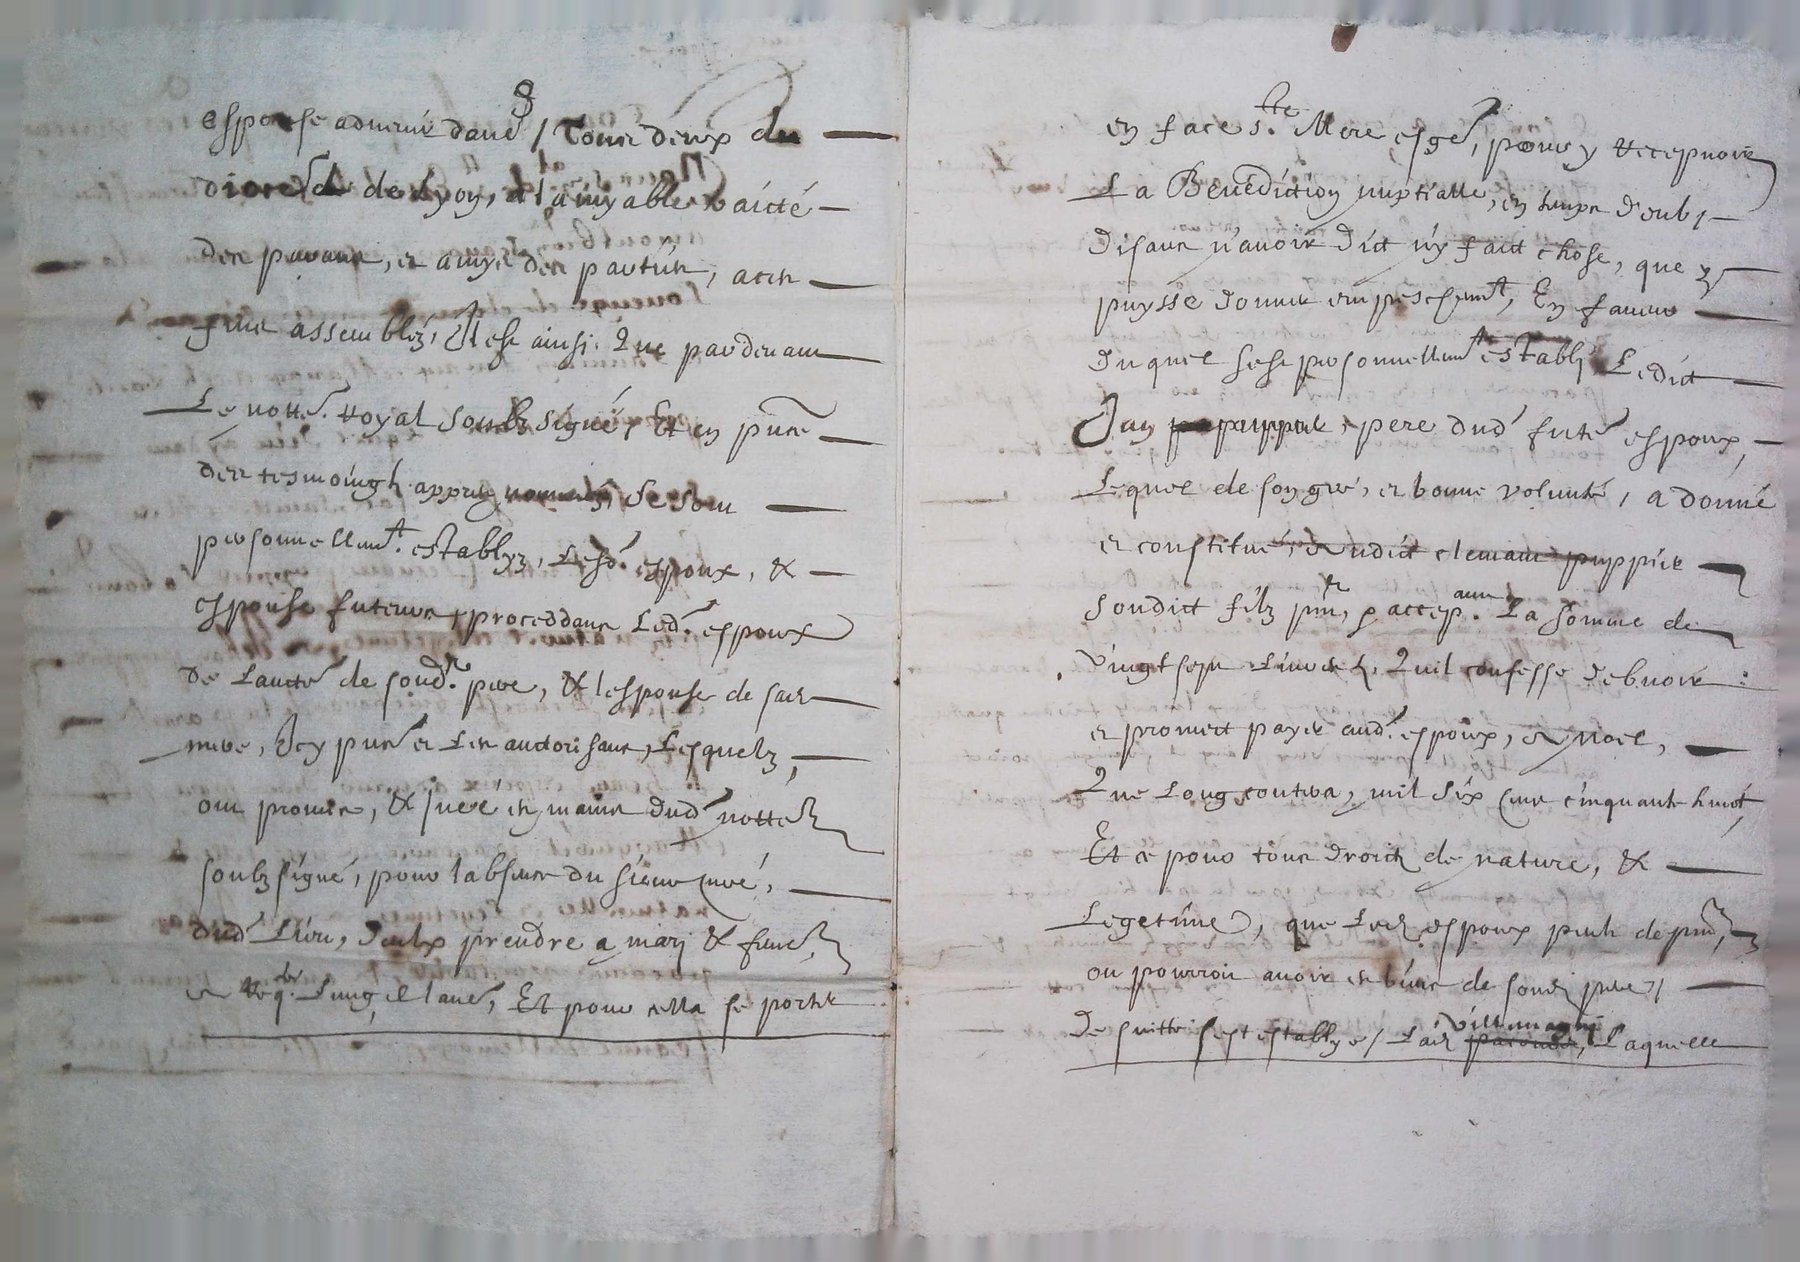 espouse advenir dauc / Tous deux du
diocese de Lyon, et l'amyable traicté
des parans, et amys des partiés, acte
fins assemblez, Il est ainsi, Que pardevant
Le notte. royal soubz signé, Et en pnce
des tesmoingz apprez nommes, Se sont
personnellemt. establyz, Lesd. espoux, &
espouse futeurs, proceddans Led. espoux
De Laucté de sond. pere, & lespouse de sad
mere, Icy pnte et Les auctorisans, Lesquelz,
ont promis, & juré es mains dud notte
soubzsigné, pour labsence du sieur curé,
dud Lieu, deulx prendre a mary & femme,
a req. Lung et lautre, Et pour cella se porter
en face ste. Mere esge, pour y recepvoir
La Benediction nuptialle, en temps deub,
disans n'avoir dict ny faict chose, que y
puysse donner empeschemt, En faveur
Duquel sest personnellemt establi Ledict
Jan puppier, pere dud futer espoux,
Lequel de son gré, et bonne volunté, a donné
et constitué, audict clemant puppier
sondict filz pnt, & accep.ant La somme de
vingt sept Livres, Quil confesse debvoir
et promect payer aud. espoux, a Noel,
Que Long contera, mil six cens cinquante huict,
Et ce pour tous droictz de nature, &
Legetime, que Led espoux peult de pnt,
ou pourroit avoir es biens de sond pere,
De suitte sest establye, Lad villemagni Laquelle